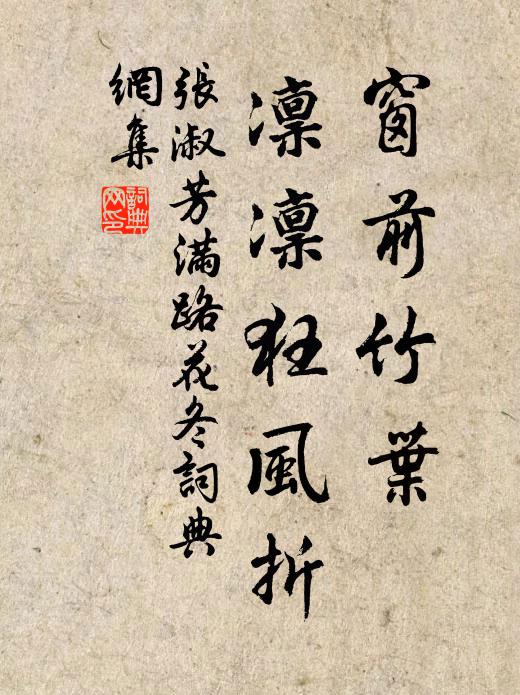 窗前竹葉
凛凛狂風折
張淑芳满路花冬詞典
網集
詞典
网印